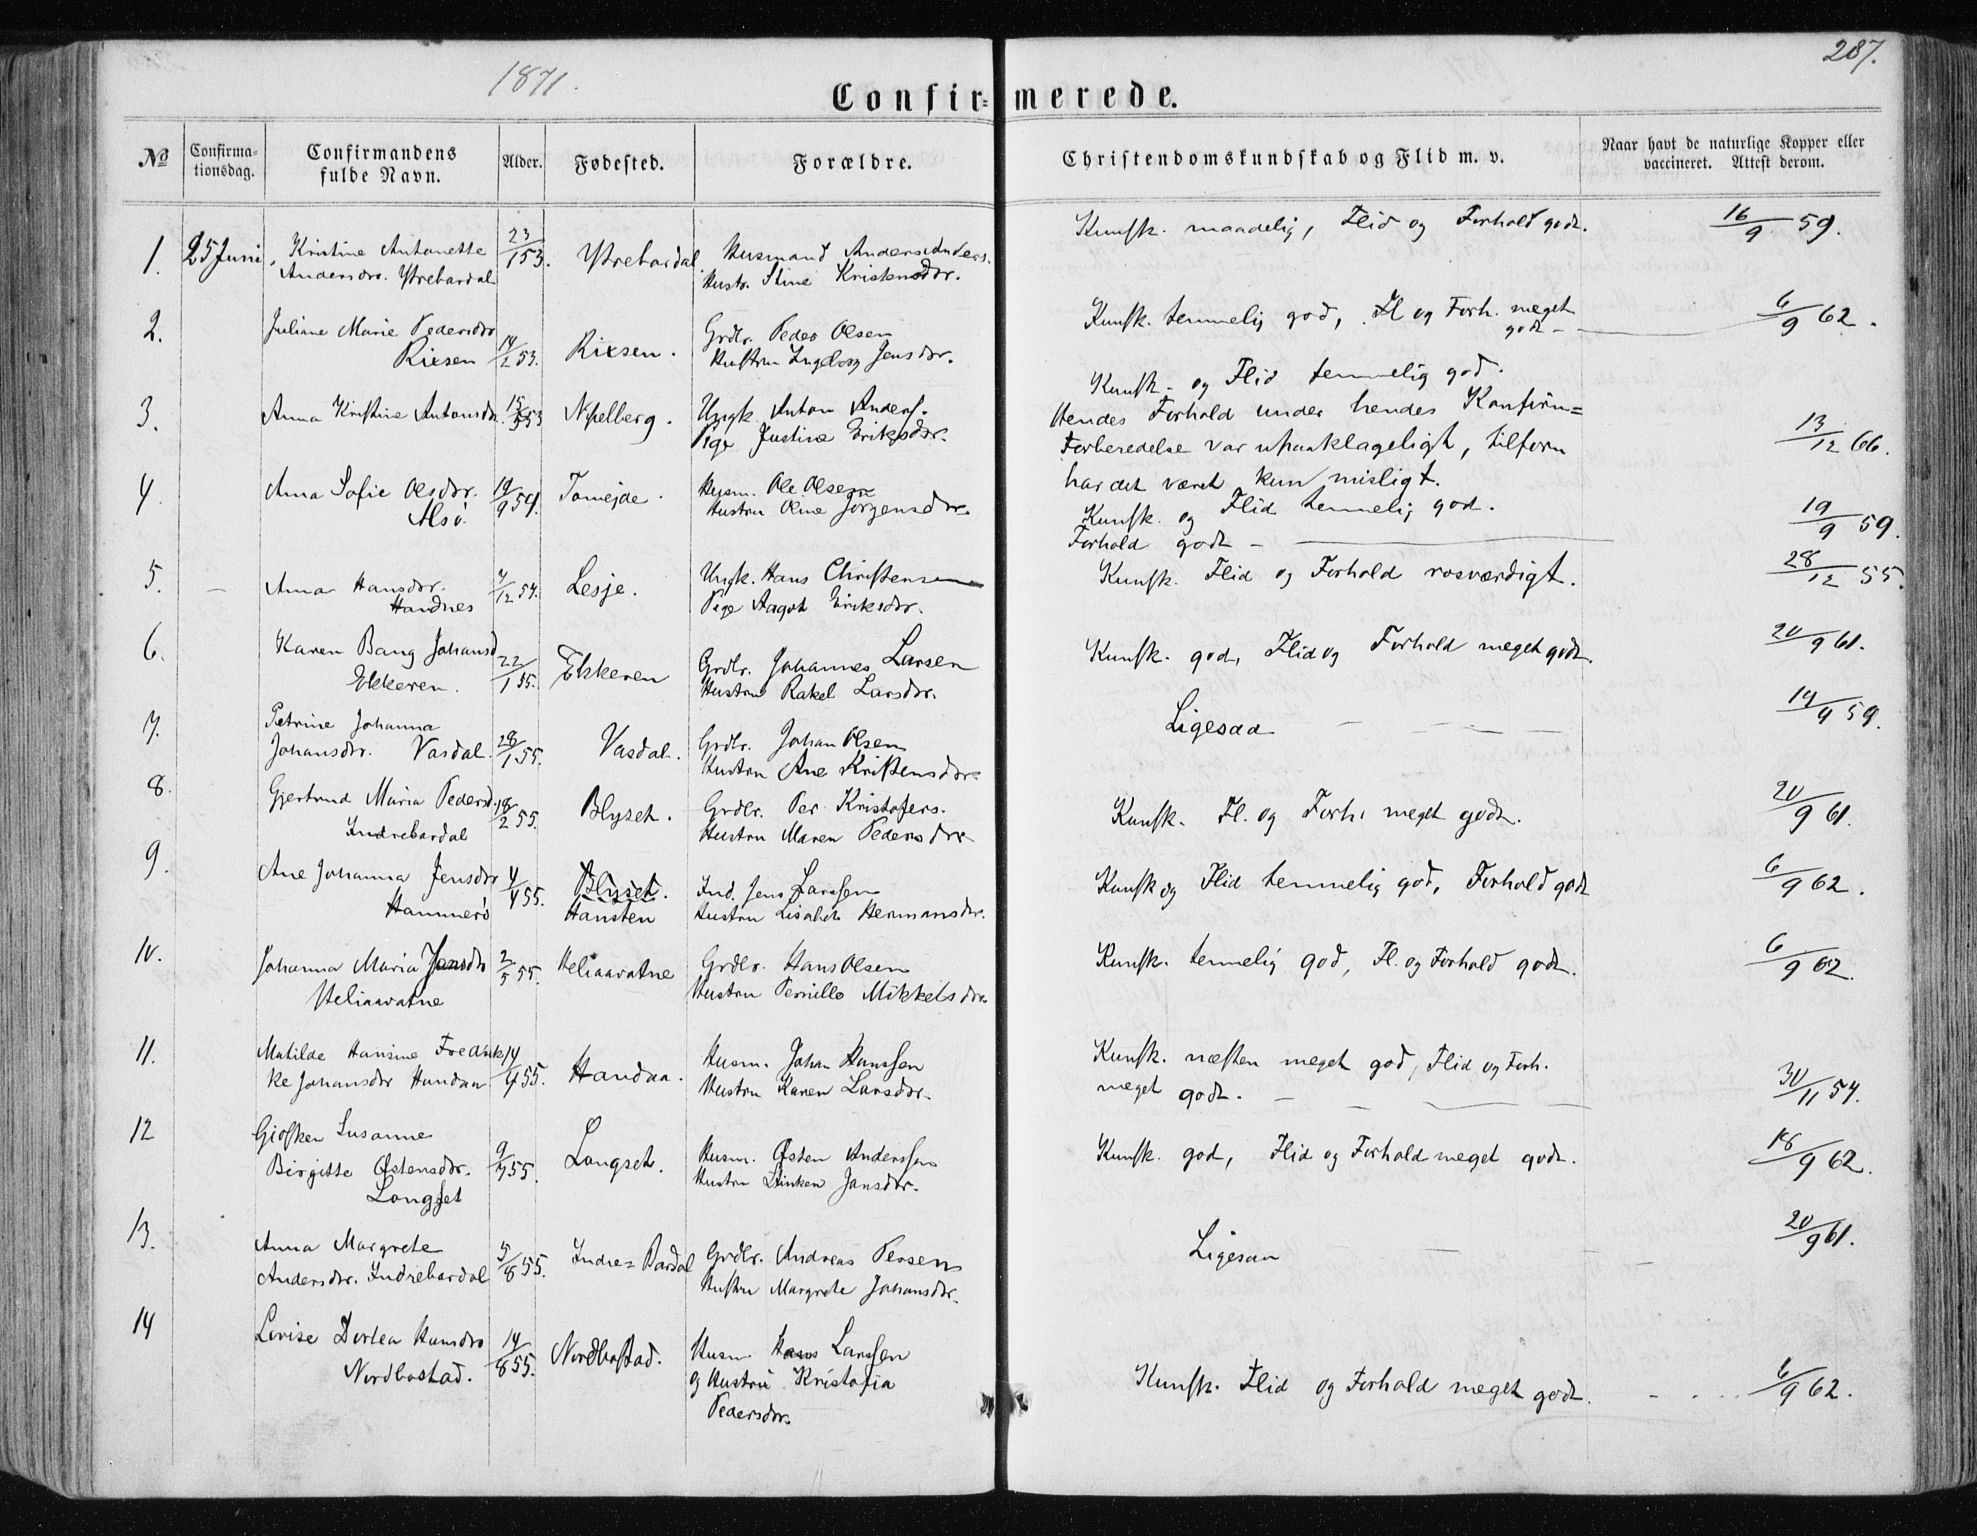 1871.
287.
Confir= merede.
No
Confirma-
tionsdag.
Confirmandens
fulde Navn.
Alder.
Fødested.
Forældre.
Christendomskundskab og Flid m. v.
Naar havt de naturlige Kopper eller
vaccineret. Attest derom.
1. 25 Juni. Kristine Antonette 23/1 53. Ytrebardal. Husmand Anders Anders. Kunsk. maadelig, Flid og Forhold godt. 16/9 59.
Andersdr. Ytrebardal Hustr. Stine Kristensdr.
2. Juliane Marie Pedersdr Grdbr. Peder Olsen Kunsk. temmelig god, Fl og Forh. meget 6/9 62.
Rixsen 14/2 53. Rixsen. Hustru Ingeborg Jensdr. godt
Kunsk. og Flid temmelig god.
3. Anna Kristine Antonsdr. 53 Ungk. Anton Anders. Hendes Forhold under hendes Konfirm=
Pige Justine Eriksdr. Forberedelse var upaaklageligt, tilforn 13/12 66.
har det været kun misligt.
4. Anna Sofie Olsdr. 19/9 54. Husm. Ole Olsen Kunsk. og Flid temmelig god. 19/9 59.
Alsö. Hustru Jørgensdr. Forhold godt
5. Anna Hansdr. 54. Lesje. Ungk. Hans Christensen Kunsk. Flid og Forhold rosværdigt. 28/12 55.
Handnes Pige Aagot Eriksdr.
6. Karen Bang Johansd 22/1 55. Ekkeren Grdbr. Johannes Larsen Kunsk. god, Flid og Forhold meget godt. 20/9 61.
Ekkeren. Hustru Rakel Larsdr.
7. Petrine Johanna 28/1 55. Vasdal. Grdbr. Johan Olsen Ligesaa 19/9 59.
Johansdr. Vasdal. Hustru Ane Kristensdr.
8. Gjertrud Maria Pedersd. 18/2 55. Blyset. Grdbr. Per Kristofers. Kunsk. Fl. og Forh. meget godt. 20/9 61.
Indrebardal Hustru Maren Pedersdr
9. Ane Johanna Jensdr 4/4 55. Blyset. Ind. Jens Larssen Kunsk og Flid temmelig god, Forhold godt 6/9 62.
Hammerö Hansten Hustru Lisabet Hermansdr.
10. Johanna Maria Jansdr 2/5 55. Heliaavatne Grdbr. Hans Olsen Kunsk. temmelig god, Fl. og Forhold godt. 6/9 62.
Heliaavatne Hustru Pernille Mikkelsdr.
11. Matilde Hansine Fredrik 14/4 55. Handaa. Husm. Johan Hanssen Kunsk. næsten meget god, Flid og Forh. 30/11 54.
ke Johansdr Handaa Hustru Karen Larsdr. meget godt.
12 Susanne 9/4 55. Langset. Husm. Østen Anderssen Kunsk. god, Flid og Forhold meget godt. 18/9 62.
Birgitte Østensdr. Hustru Jansdr.
Langset
13. Anna Margrete 5/8 55. Indre=Bardal Grdbr. Andreas Persen Ligesaa 20/9 61.
Andersdr. Indrebardal Hustru Margrete Johansdr.
14 Lovise Dortea Hansdr 14/8 55. Nordbostad. Husm Hans Larssen Kunsk. Flid og Forhold meget godt. 6/9 62.
Nordbostad. og Hustru Kristofia
Pedersdr.